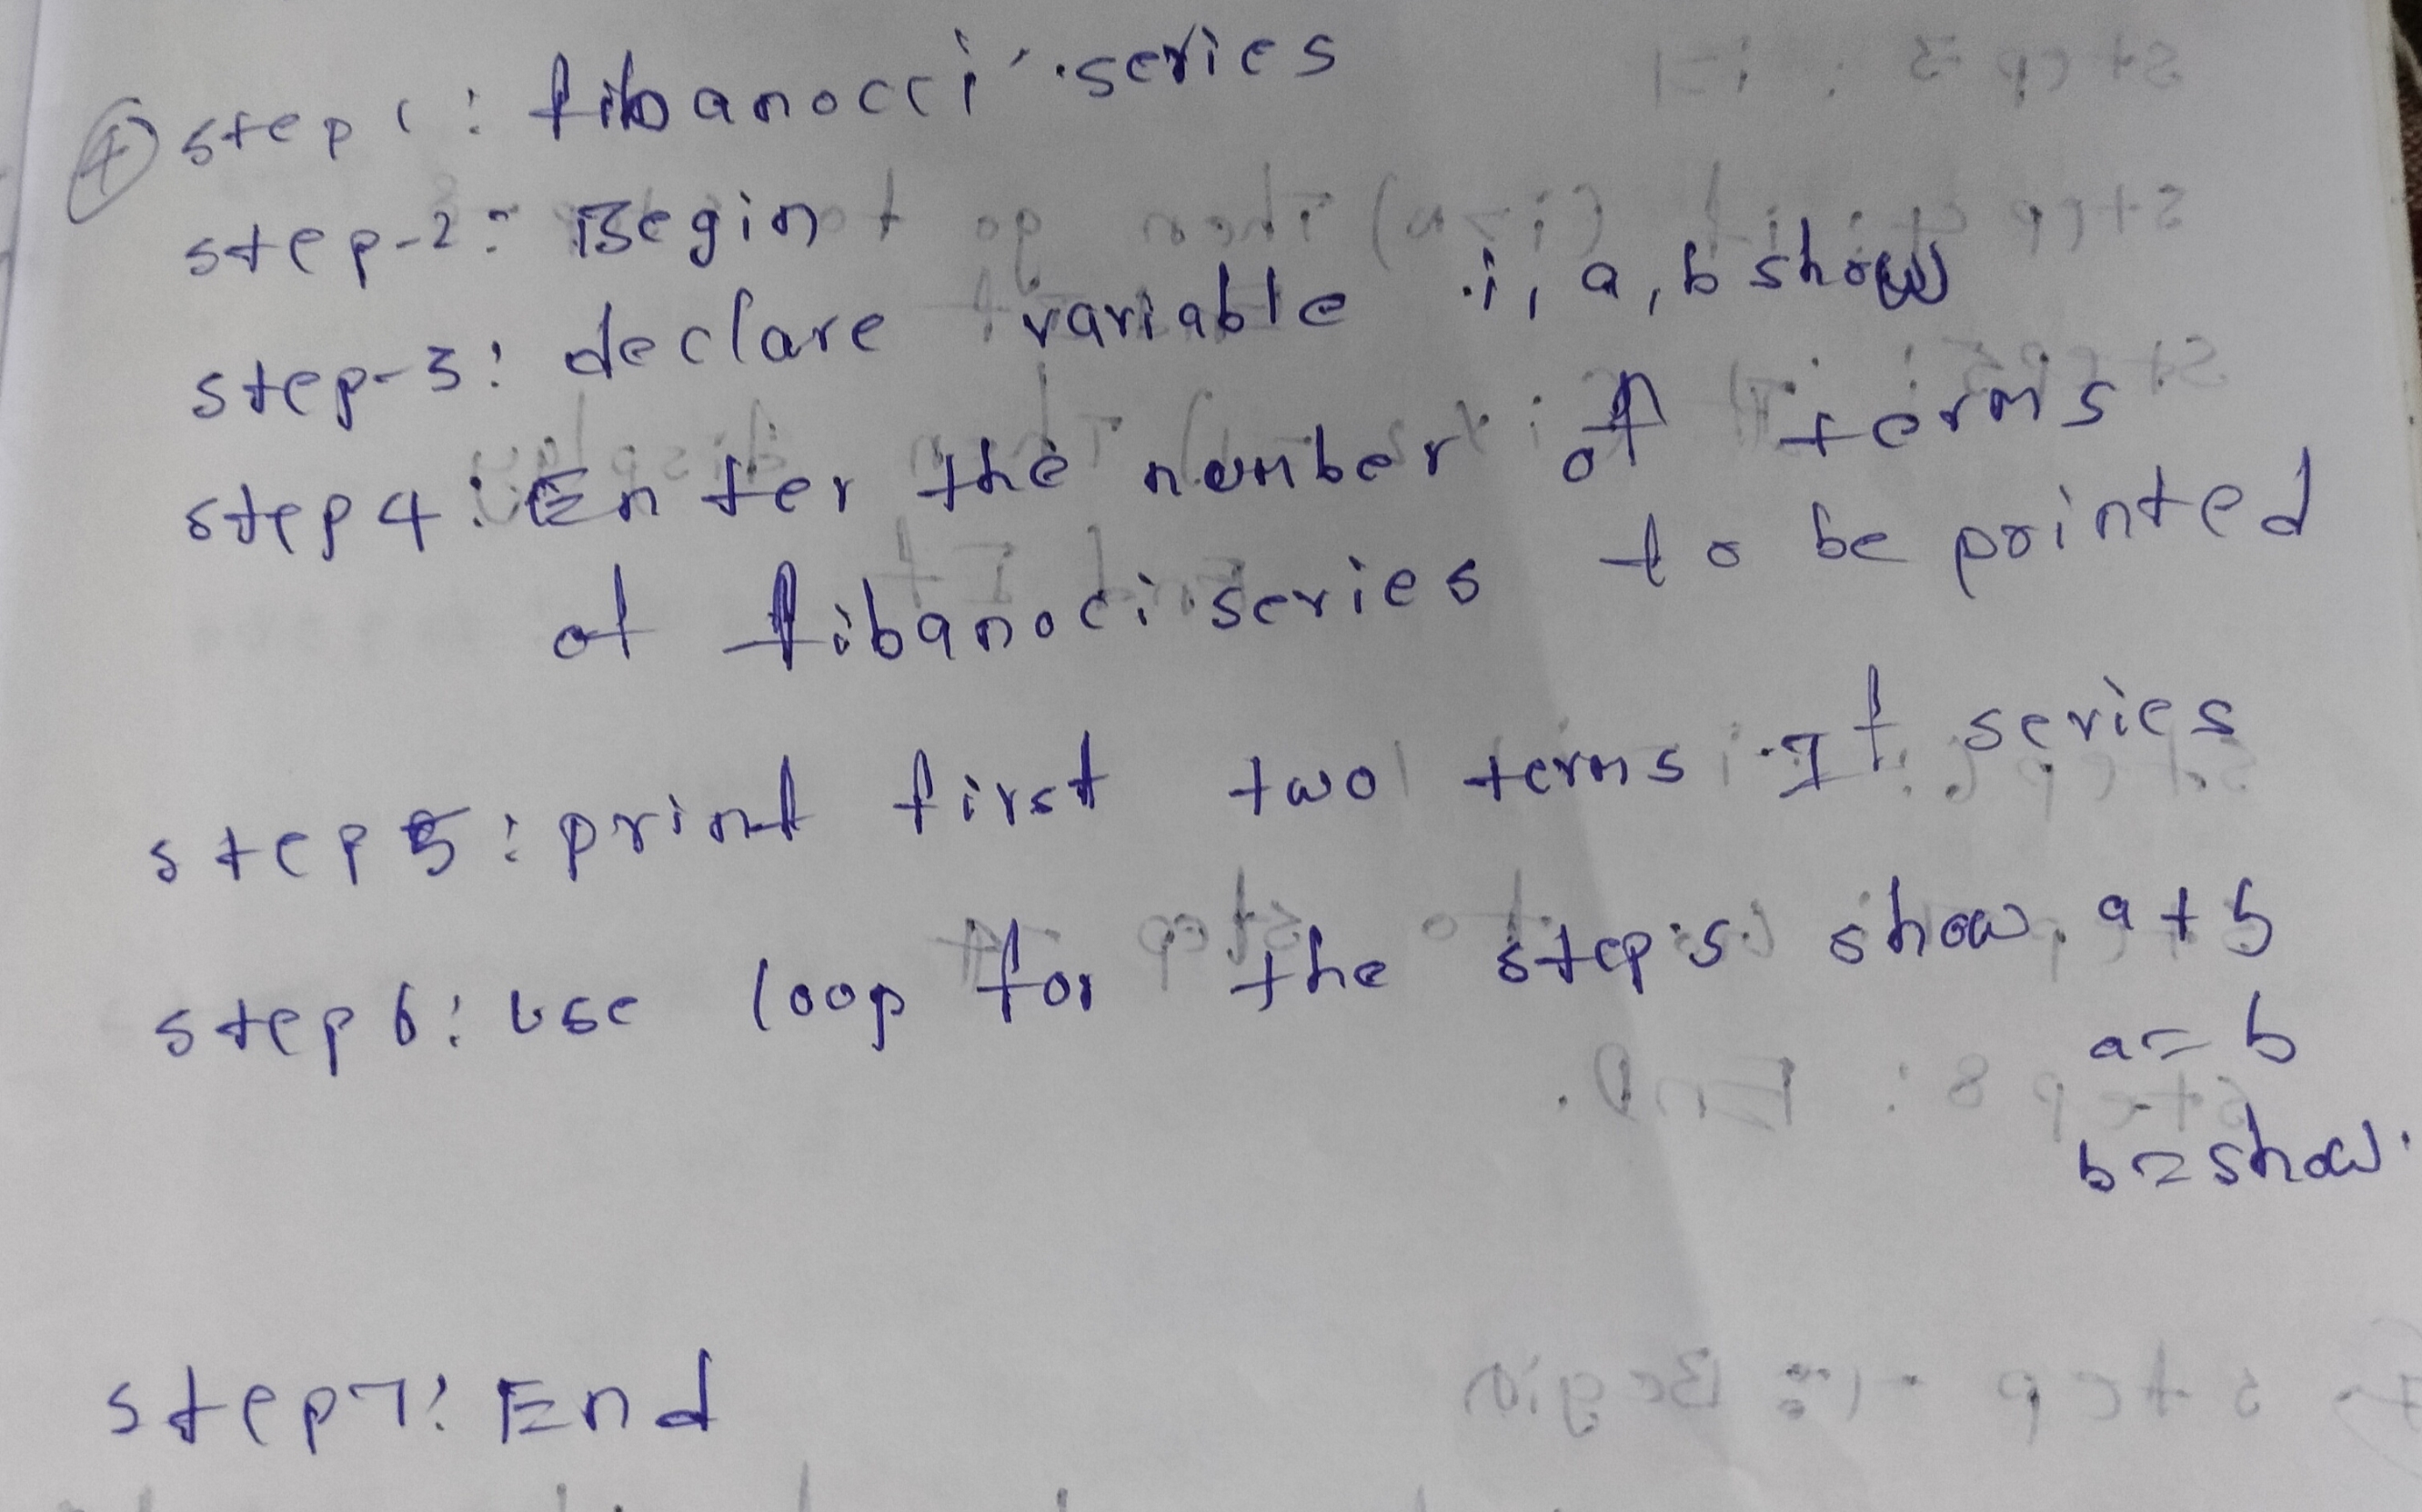 step 1 : fibanocci series
step-2: Begin
step-3: declare variable i, a, b show
step 4: Enter the number of terms
of fibanoci series to be printed
step 5: print first two terms If series
step 6: use loop for the step's show a+b
a=b
b=show.
step 7: End